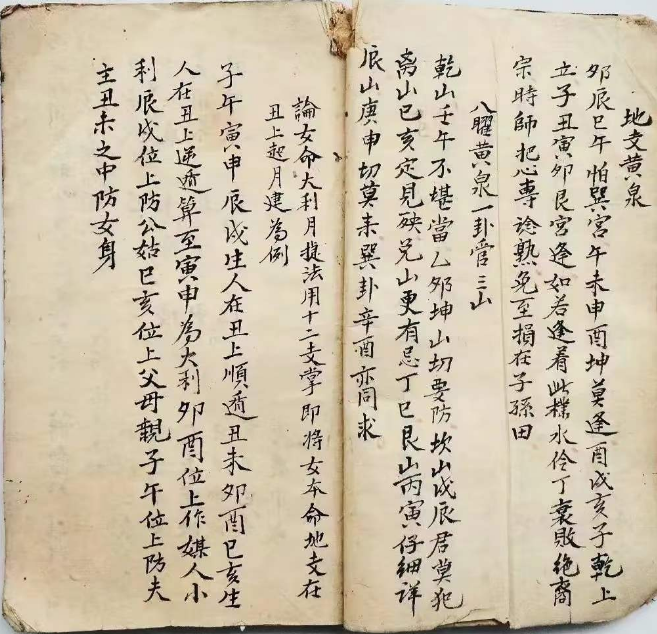 地支黄泉
夘辰巳午怕巽宮午未申酉坤莫逢酉戍亥子乾上
立子丑寅夘艮宮逢如若逢着此樣水伶丁衰敗絶裔
宗時師把心專諗熟免至損在子孫田
八曜黄泉一卦管三山
乾山壬午不堪當乙夘坤山切要防坎山戍辰君莫犯
离山巳亥定見殃兑山更有忌丁巳艮山丙寅仔細詳
辰山庚申切莫来巽卦辛酉亦同求
論女命大利月捷法用十二支掌即將女本命地支在
丑上起月建為例
子午寅申辰戍生人在丑上順遁丑未夘酉巳亥生
人在丑上逆遁算至寅申為大利夘酉位上作媒人小
利辰戍位上防公姑巳亥位上父母親子午位上防夫
主丑未之中防女身